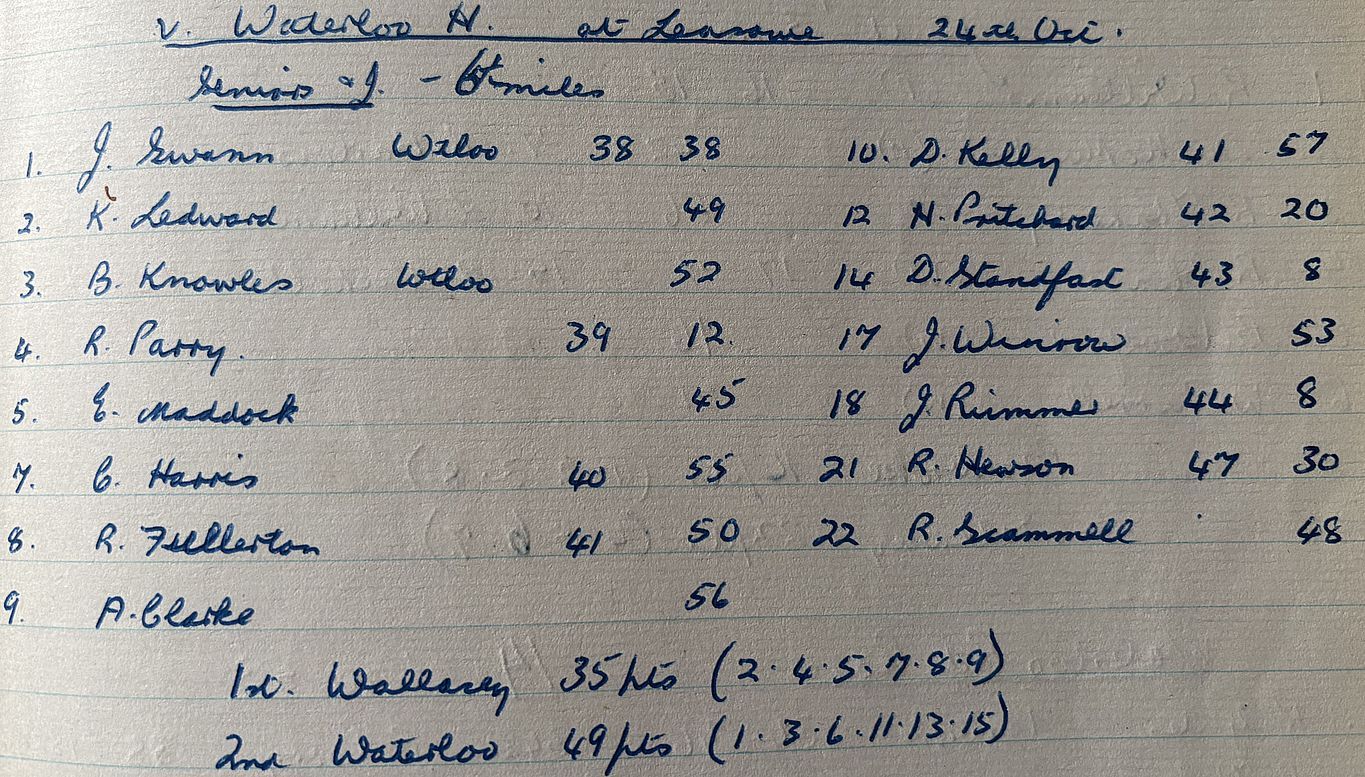 v. Waterloo H. at Leasowe 24th Oct.
Seniors & J. - 6 miles
1. J. Swann Wtloo 38 38 10. D. Kelly 41 57
2. K. Ledward 49 12 H. Pritchard 42 20
3. B. Knowles Wtloo 52 14 D. Standfast 43 8
4. R. Parry. 39 12. 17 J. Winrow 53
5. E. Maddock 45 18 J. Rimmer 44 8
7. C. Harris 40 55 21 R. Hewson 47 30
8. R. Fullerton 41 50 22 R. Scammell 48
9. A. Clarke 56
1st. Wallasey 35 pts (2.4.5.7.8.9)
2nd Waterloo 49 pts (1.3.6.11.13.15)